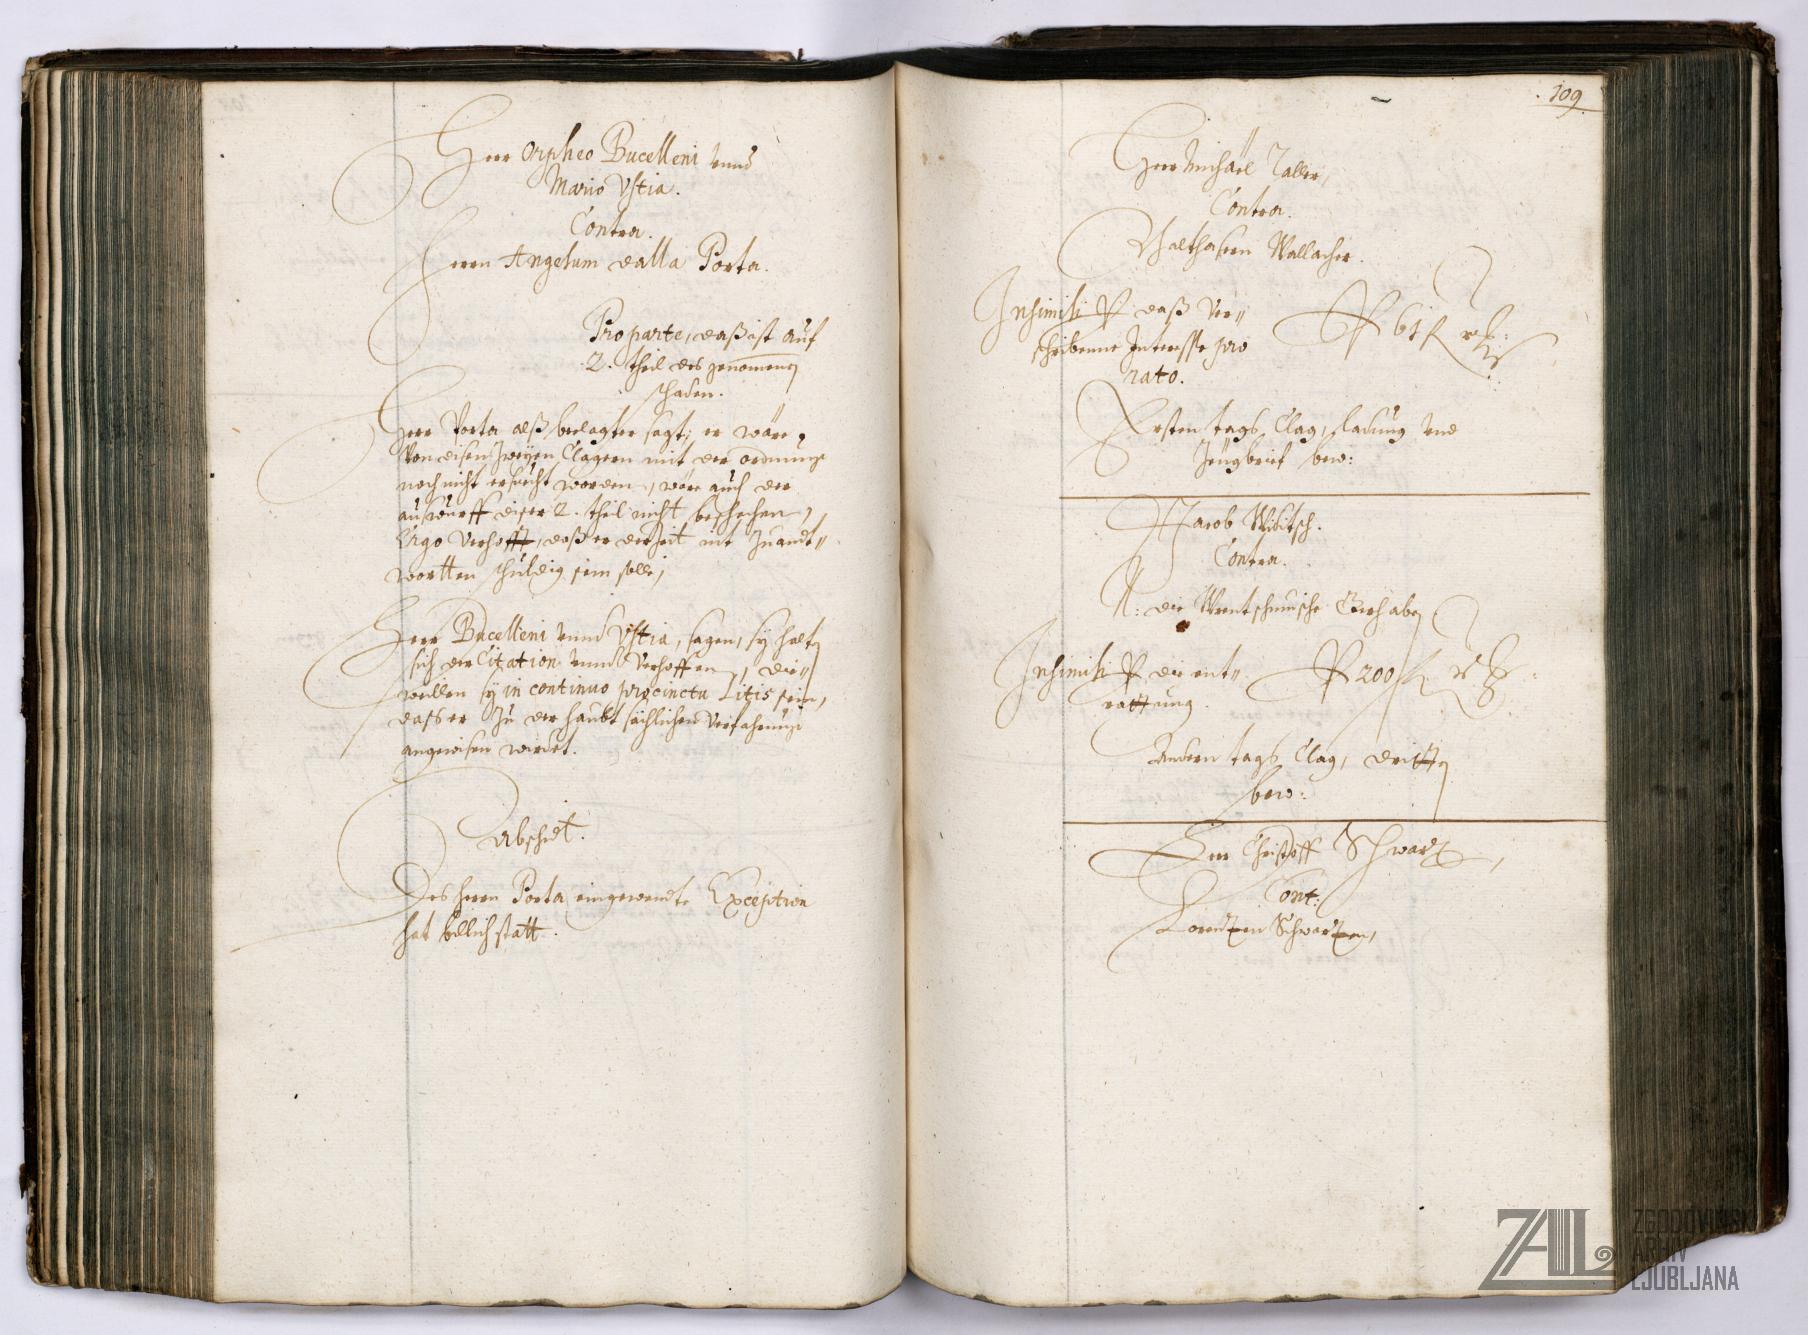 Herr Orpheo Bucelleni vnnd
Mario Vstia.
Contra.
Herrn Angelum dalla Porta.
Pro parte, daß ist auf
2. theil des genomenen
schaden.
Herr Porta alß beclagter sagt, er wäre
von disen zweyen Clagern mit der ordnung
noch nicht ersucht worden, wäre auch der
außwurff diser 2. theil nicht beschehen,
Ergo verhofft, daß er derzeit nit zuandt„
wortten schuldig sein solle,
Herr Bucelleni vnnd Vstia, sagen, sy halten
sich der Citation vnnd verhoffen, die„
weillen sy in continuo procinctu Litis sein,
dass er zu der haubtsächlichen verfahrung
angewisen wirdet.
Abschidt.
Des herrn Porta eingewendte Exception
hat billich statt.
109.
Herr Michäel Taller,
Contra.
Balthasern Wallacher.
In simili P daß ver„
schribenne Interesse pro
rato.
P 61 f
Ersten tags Clag, Ladung vnd
Zeugbrief bew:
Jacob Wibitsch.
Contra.
N: die Wrentschiuische Gerhaben
In simili P die ent„
rattung.
P 200 f
Andern tags Clag, dritten
bew:
Herr Christoff Schwarz,
Cont:
Lorentzen Schwartzen,
ZAL
ZGODOVINSKI
ARHIV
LJUBLJANA